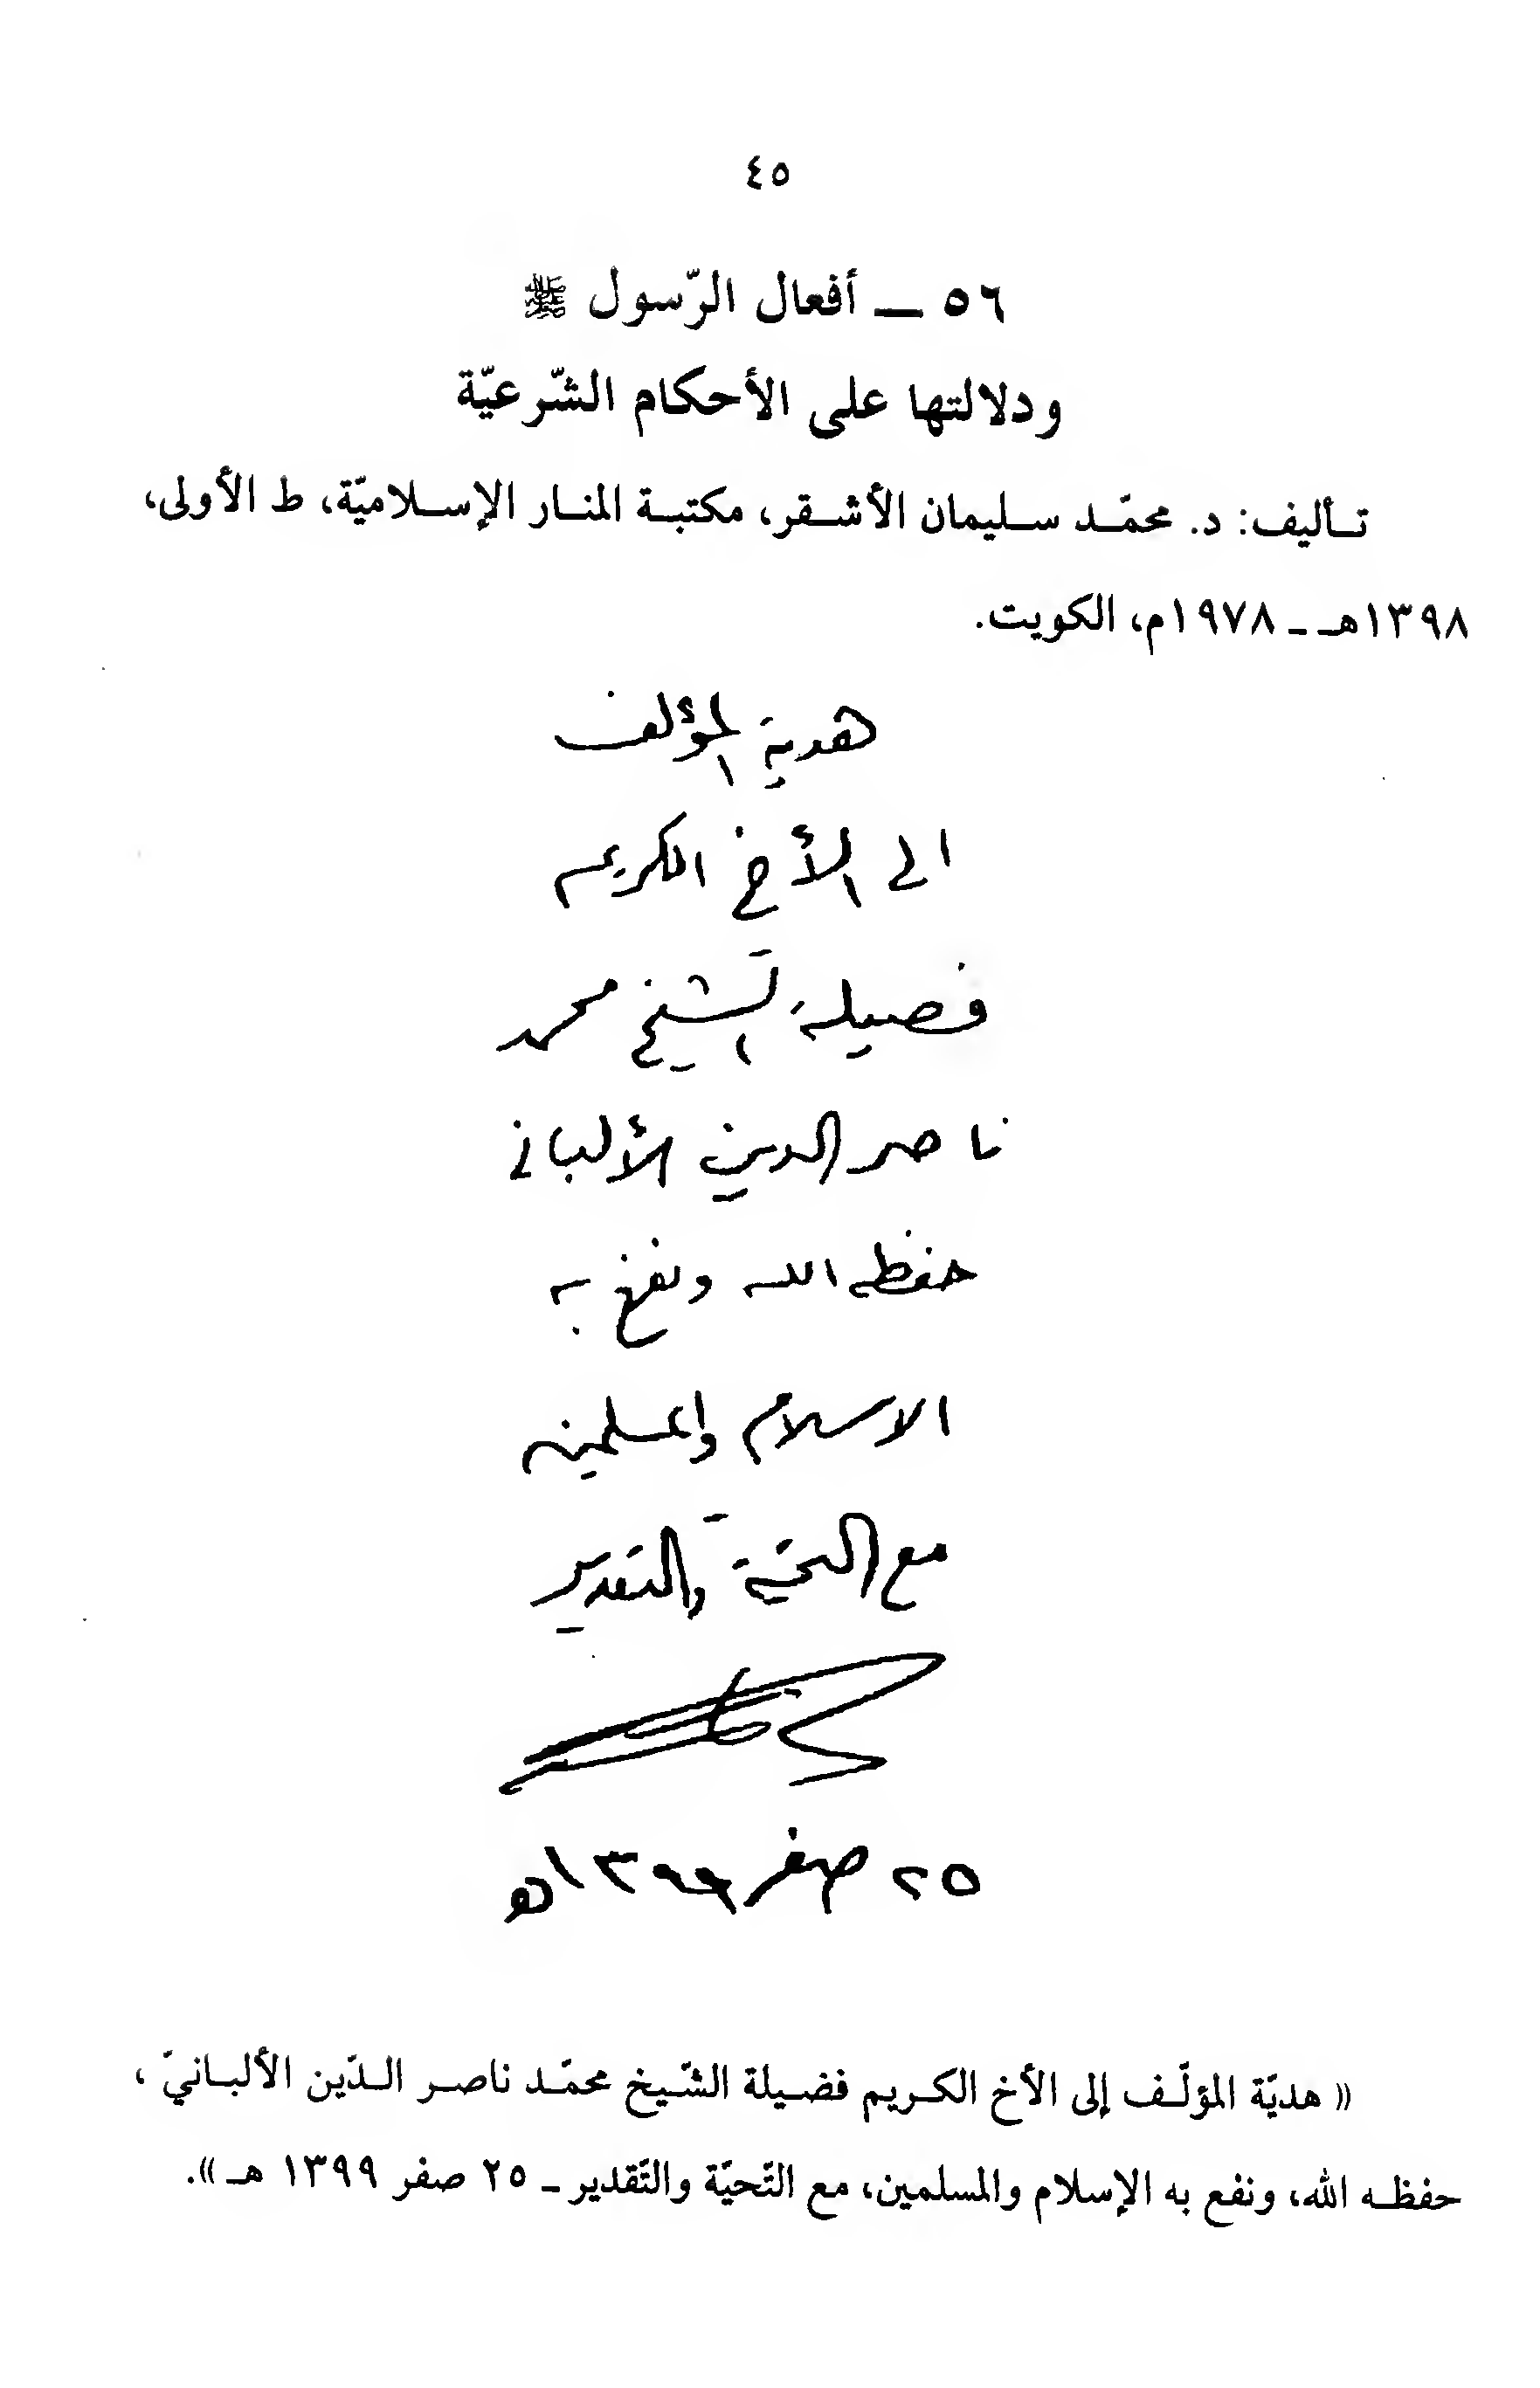 ٤٥
٥٦ ــ أفعال الرّسول ﷺ
ودلالتها على الأحكام الشّرعيّة
تـأليف: د. محمّـد سـليمان الأشـقر، مكتبـة المنـار الإسـلاميّة، ط الأولى،
١٣٩٨هـ ـ ١٩٧٨م، الكويت.
هدية المؤلف
الى الأخ الكريم
فضيلة الشيخ محمد
ناصر الدين الألباني
حفظه الله ونفع به
الاسلام والمسلمين
مع التحية والتقدير
٢٥ صفر ١٣٩٩هـ
« هديّة المؤلّـف إلى الأخ الكـريم فضـيلة الشّـيخ محمّـد ناصـر الـدّين الألبـانيّ ،
حفظـه الله، ونفع به الإسلام والمسلمين، مع التّحيّة والتّقدير ـ ٢٥ صفر ١٣٩٩ هـ ».